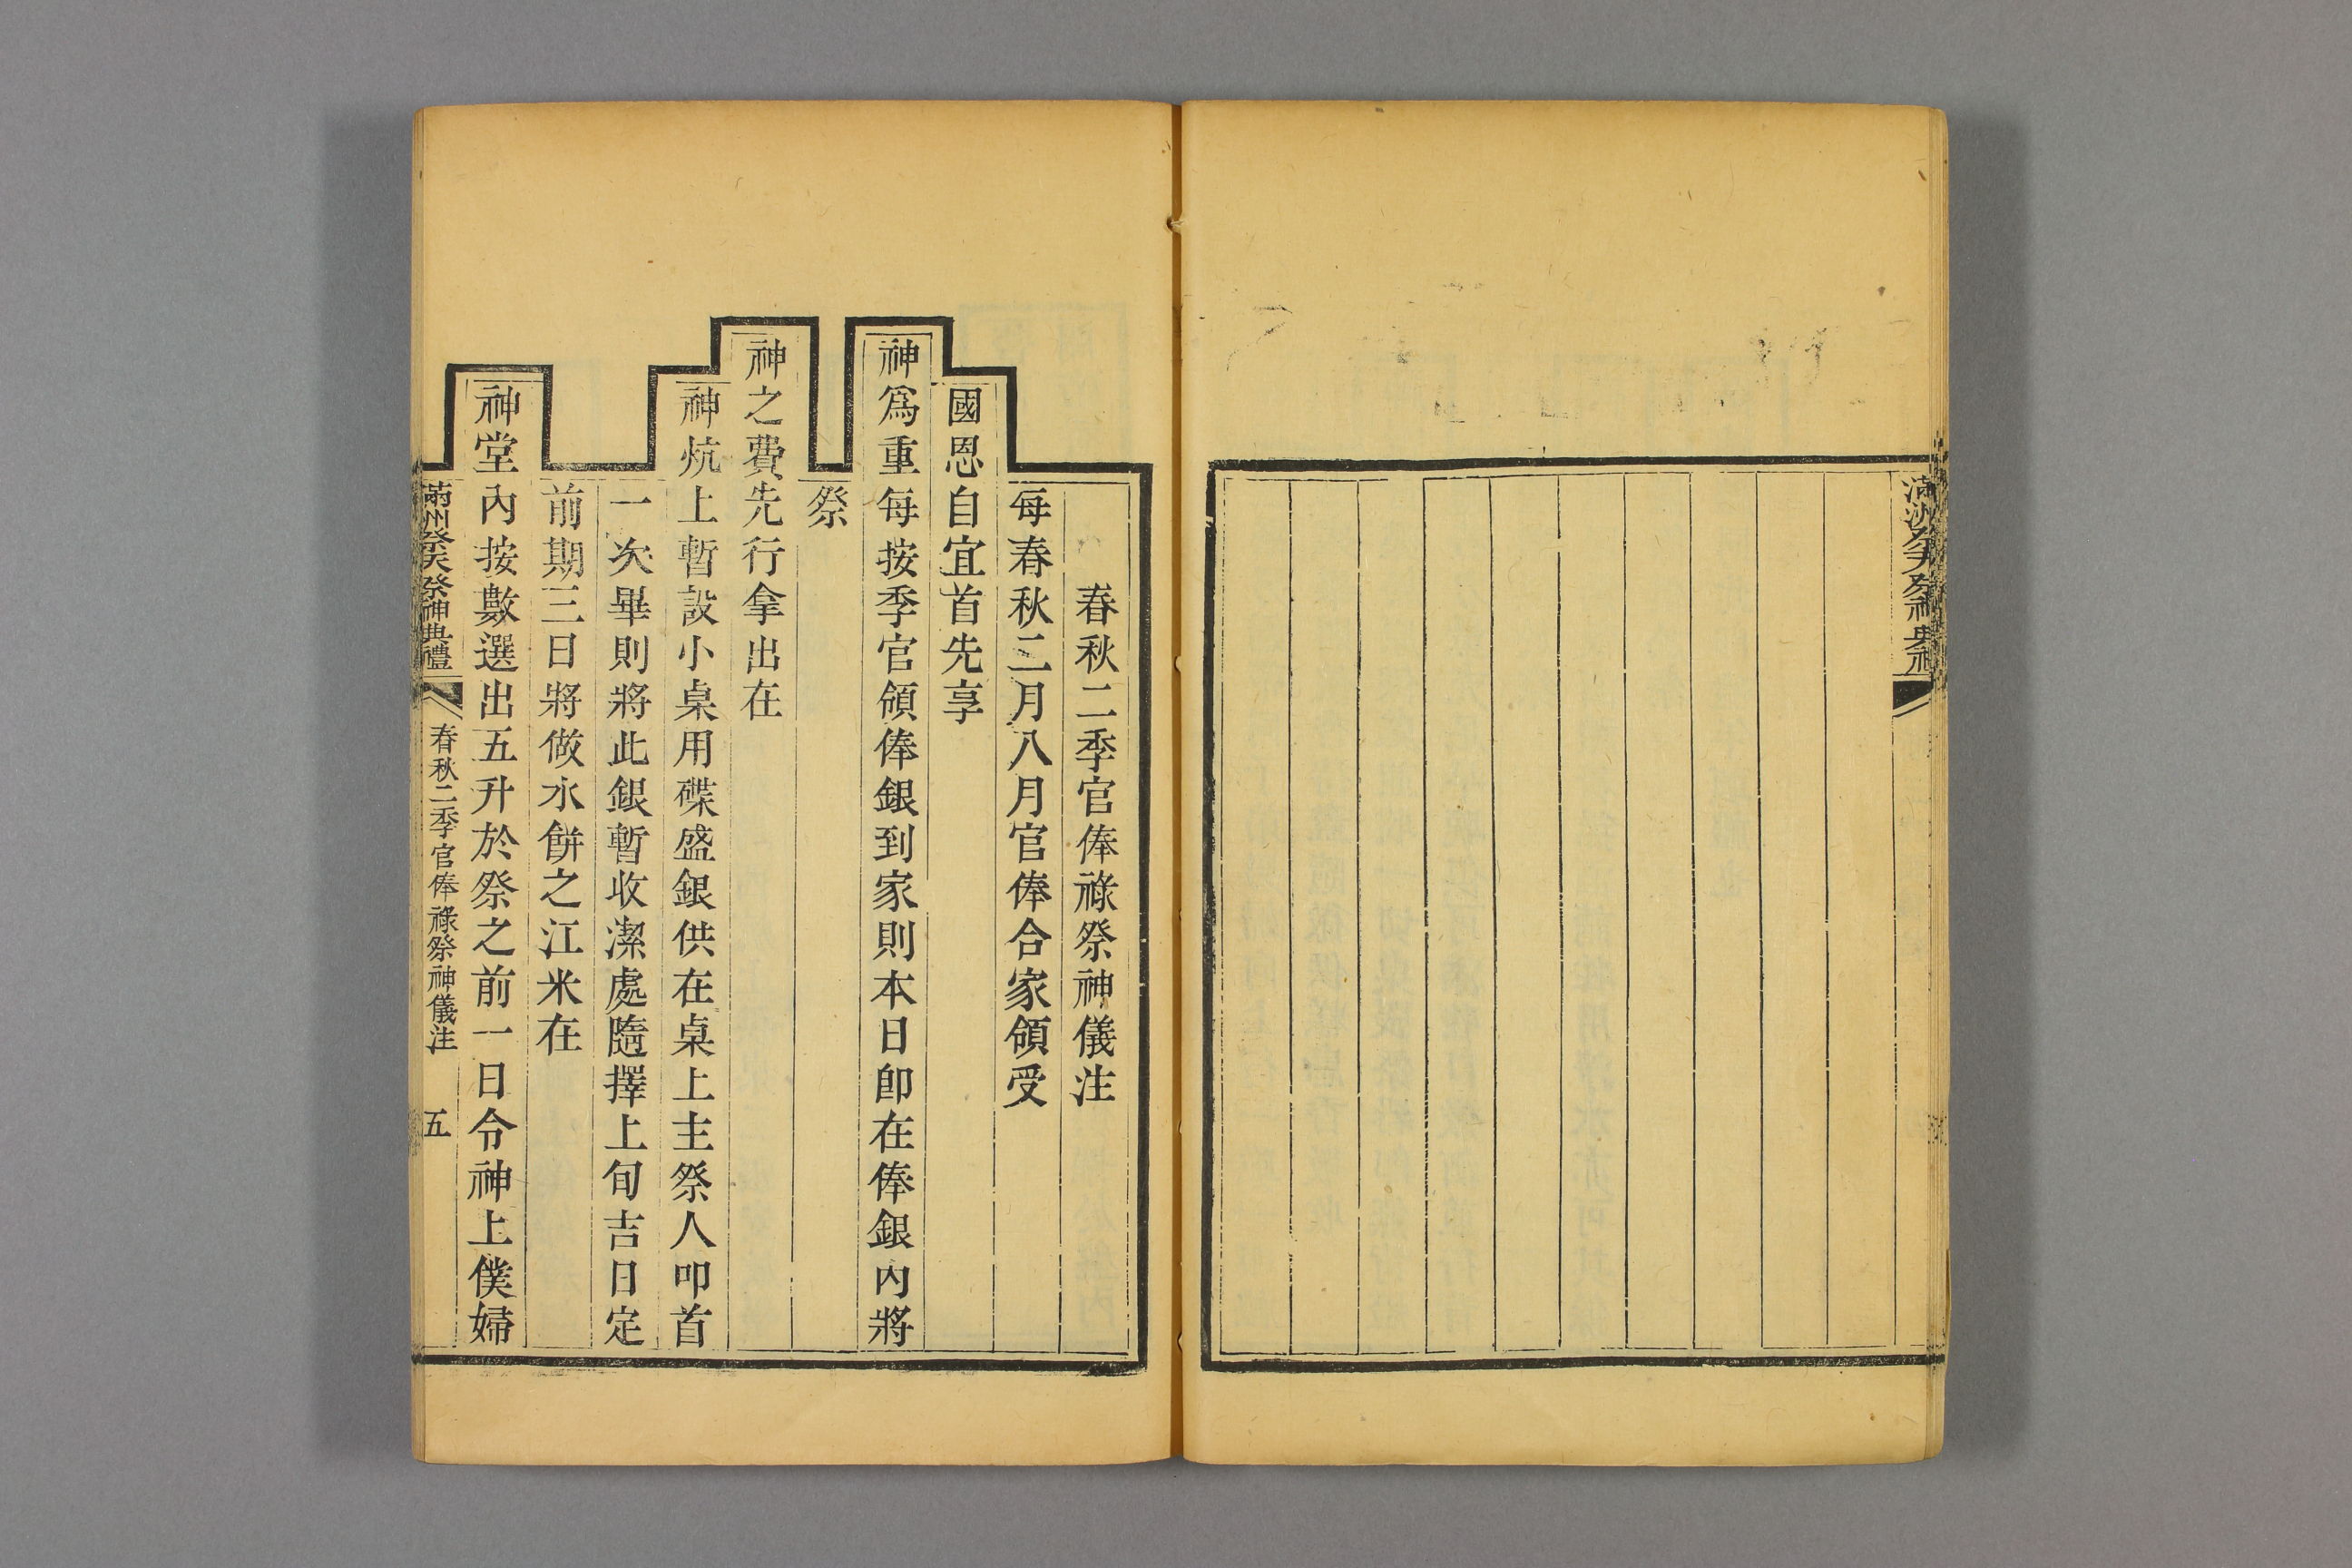 滿洲祭天祭神典禮
春秋二季官俸祿祭神儀注
每春秋二月八月官俸合家領受
國恩自宜首先享
神爲重每按季官領俸銀到家則本日卽在俸銀內將
祭
神之費先行拿出在
神炕上暫設小桌用碟盛銀供在桌上主祭人叩首
一次畢則將此銀暫收潔處隨擇上旬吉日定
前期三日將做水餅之江米在
神堂內按數選出五升於祭之前一日令神上僕婦
滿州祭天祭神典禮 春秋二季官俸祿祭神儀注 五